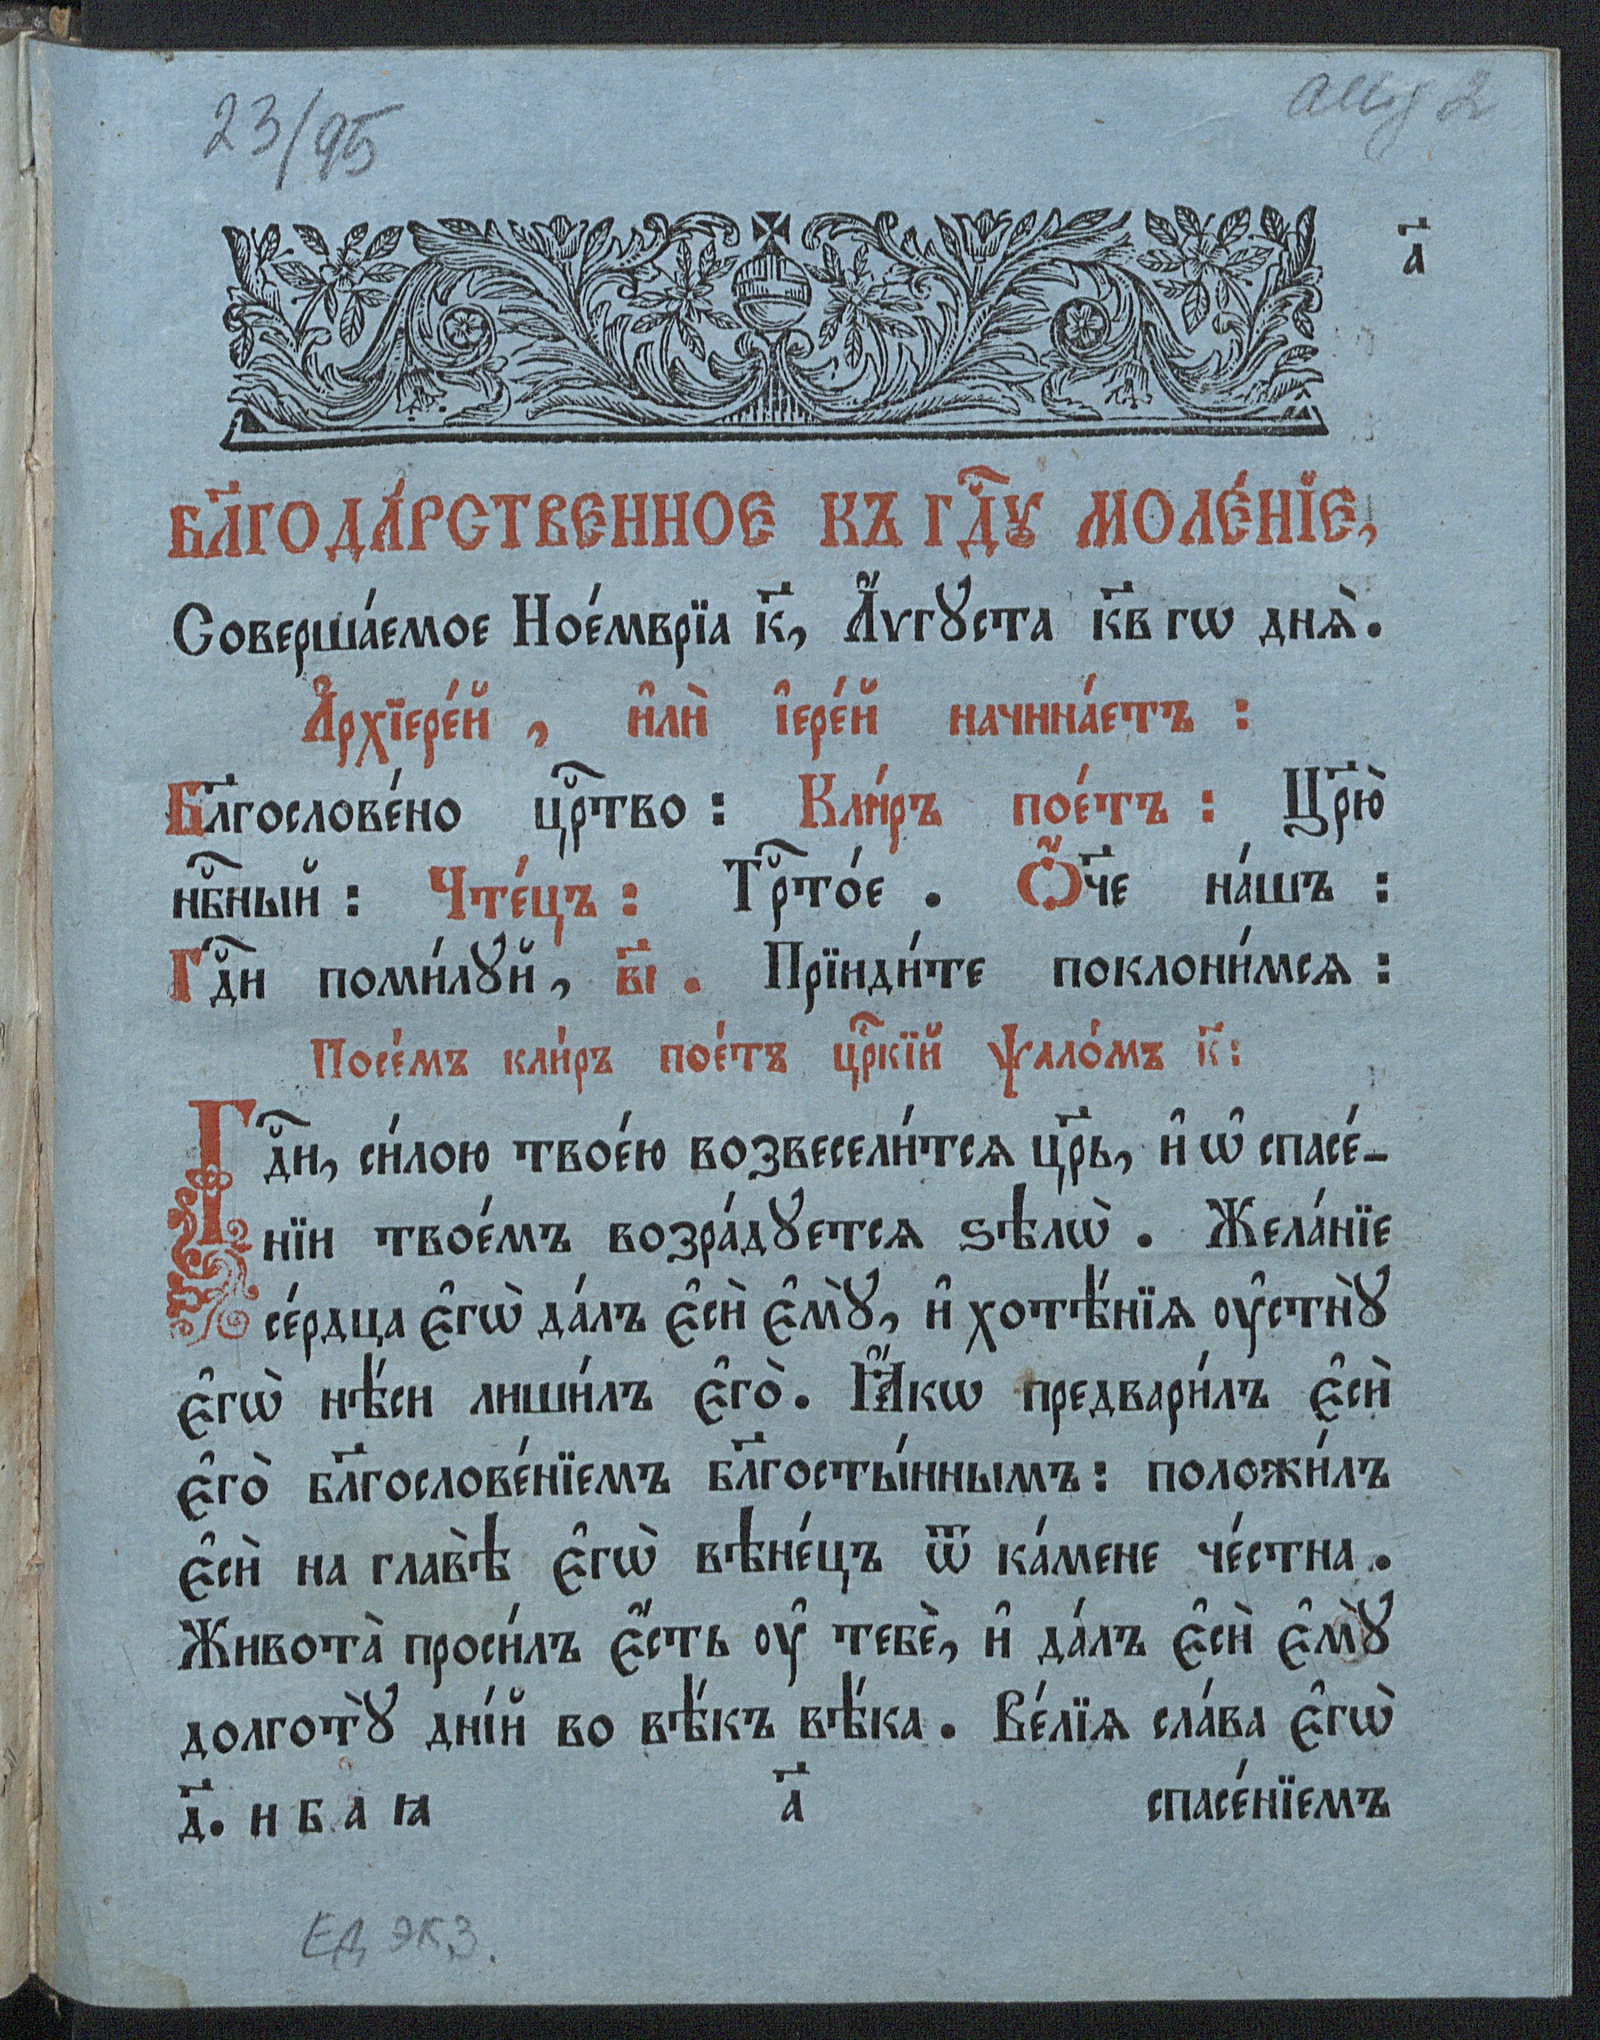 23/95
а҃
БЛ҃ГОДА́РСТВЕННОЕ КЪ ГДⷭ҇Ꙋ МОЛЕ́НЇЕ,
Соверша́емое Ное́мврїа к҃, А҆́ѵгꙋста к҃в гѡ днѧ̀.
А҆рхїере́й , и҆лѝ і҆ере́й начина́етъ :
Бл҃гослове́но црⷭ҇тво : Кли́ръ пое́тъ : Цр҃ю̀
нбⷭ҇ный : Чте́цъ : Трⷭ҇то́е . Ѻ҆́ч҃е на́шъ :
Гдⷭ҇и поми́лꙋй , в҃і . Прїиди́те поклони́мсѧ :
Посе́мъ кли́ръ пое́тъ црⷭ҇кїй ѱало́мъ к҃ :
Гдⷭ҇и, си́лою твое́ю возвесели́тсѧ цр҃ь, и҆ ѡ҆ спасе́-
нїи твое́мъ возра́дꙋетсѧ ѕѣлѡ̀ . Жела́нїе
се́рдца є҆гѡ̀ да́лъ є҆сѝ є҆мꙋ̀, и҆ хотѣ́нїѧ оу҆стнꙋ̀
є҆гѡ̀ нѣ́си лиши́лъ є҆го̀. Ꙗ҆́кѡ предвари́лъ є҆сѝ
є҆го̀ бл҃гослове́нїемъ бл҃госты́ннымъ : положи́лъ
є҆сѝ на главѣ̀ є҆гѡ̀ вѣне́цъ ѿ ка́мене че́стна .
Живота̀ проси́лъ є҆́сть оу҆ тебѐ, и҆ да́лъ є҆сѝ є҆мꙋ̀
долготꙋ̀ дні́й во вѣ́къ вѣ́ка . Ве́лїѧ сла́ва є҆гѡ̀
д҃. н б а ꙗ а҃ спасе́нїемъ
ЕД ЭКЗ.